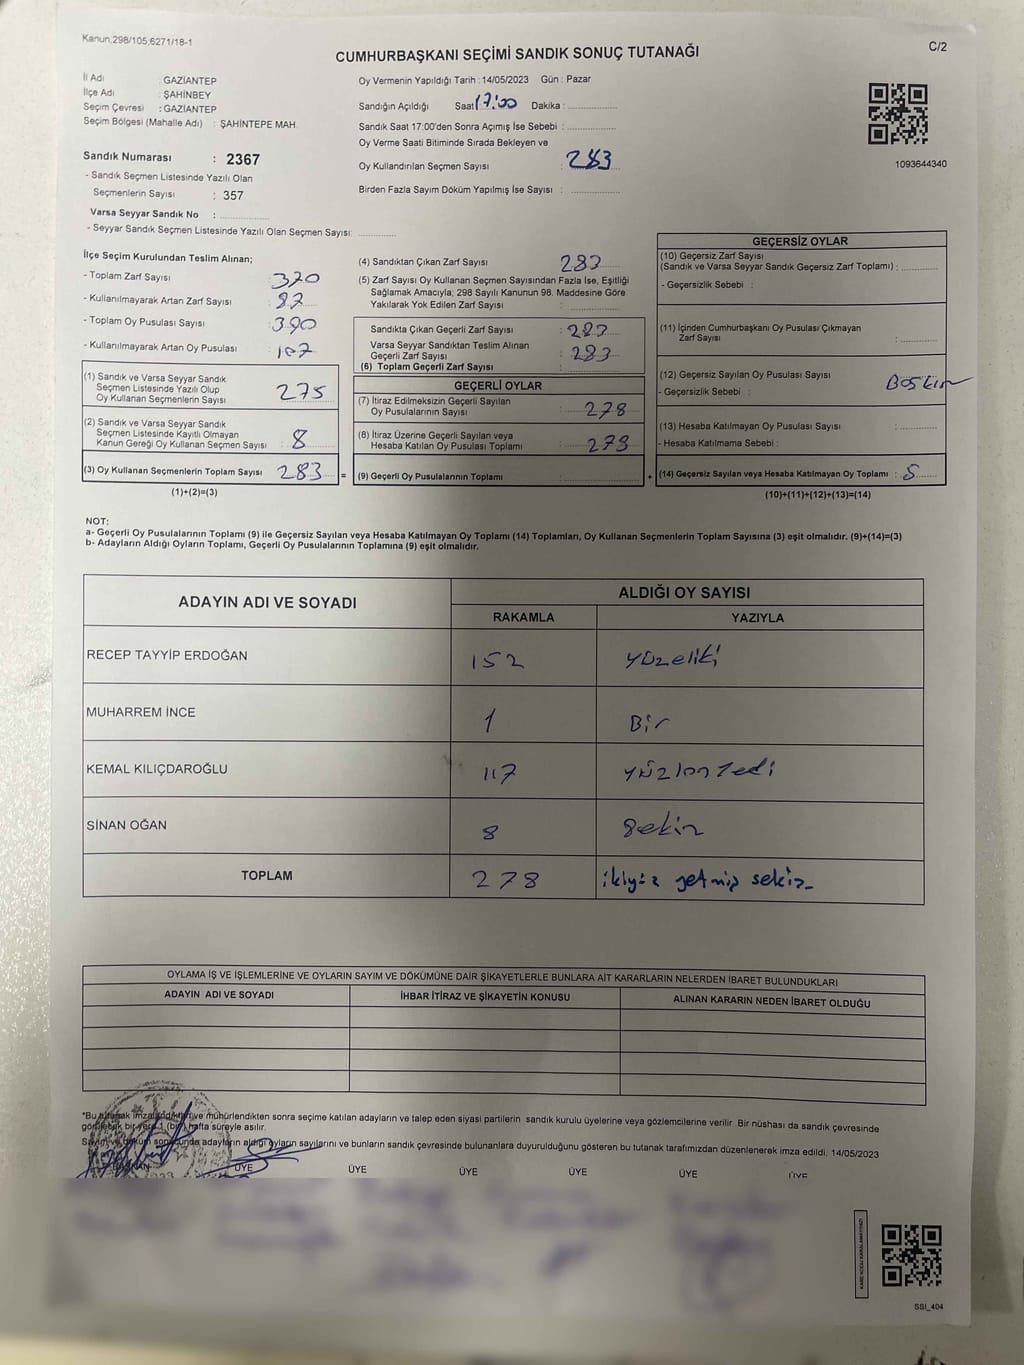 Kanun;298/105,6271/18-1
C/2
CUMHURBAŞKANI SEÇİMİ SANDIK SONUÇ TUTANAĞI
İl Adı : GAZİANTEP
İlçe Adı : ŞAHİNBEY
Seçim Çevresi : GAZİANTEP
Seçim Bölgesi (Mahalle Adı) : ŞAHİNTEPE MAH.
Sandık Numarası : 2367
- Sandık Seçmen Listesinde Yazılı Olan
Seçmenlerin Sayısı : 357
Varsa Seyyar Sandık No : ....................
- Seyyar Sandık Seçmen Listesinde Yazılı Olan Seçmen Sayısı: ...............
Oy Vermenin Yapıldığı Tarih : 14/05/2023 Gün : Pazar
Sandığın Açıldığı Saat 17:00 Dakika : ...............
Sandık Saat 17:00'den Sonra Açımış İse Sebebi : ...............
Oy Verme Saati Bitiminde Sırada Bekleyen ve
Oy Kullandırılan Seçmen Sayısı : 283
Birden Fazla Sayım Döküm Yapılmış İse Sayısı : ...............
1093644340
İlçe Seçim Kurulundan Teslim Alınan;
- Toplam Zarf Sayısı : 370
- Kullanılmayarak Artan Zarf Sayısı : 87
- Toplam Oy Pusulası Sayısı : 390
- Kullanılmayarak Artan Oy Pusulası : 107
(1) Sandık ve Varsa Seyyar Sandık
Seçmen Listesinde Yazılı Olup
Oy Kullanan Seçmenlerin Sayısı : 275
(2) Sandık ve Varsa Seyyar Sandık
Seçmen Listesinde Kayıtlı Olmayan
Kanun Gereği Oy Kullanan Seçmen Sayısı : 8
(3) Oy Kullanan Seçmenlerin Toplam Sayısı : 283 =
(1)+(2)=(3)
(4) Sandıktan Çıkan Zarf Sayısı : 283
(5) Zarf Sayısı Oy Kullanan Seçmen Sayısından Fazla İse, Eşitliği
Sağlamak Amacıyla; 298 Sayılı Kanunun 98. Maddesine Göre
Yakılarak Yok Edilen Zarf Sayısı : ...............
Sandıkta Çıkan Geçerli Zarf Sayısı : 283
Varsa Seyyar Sandıktan Teslim Alınan
Geçerli Zarf Sayısı : 283
(6) Toplam Geçerli Zarf Sayısı
GEÇERLİ OYLAR
(7) İtiraz Edilmeksizin Geçerli Sayılan
Oy Pusulalarının Sayısı : 278
(8) İtiraz Üzerine Geçerli Sayılan veya
Hesaba Katılan Oy Pusulası Toplamı : 273
(9) Geçerli Oy Pusulalarının Toplamı : ............... +
GEÇERSİZ OYLAR
(10) Geçersiz Zarf Sayısı
(Sandık ve Varsa Seyyar Sandık Geçersiz Zarf Toplamı) : ..........
- Geçersizlik Sebebi :
(11) İçinden Cumhurbaşkanı Oy Pusulası Çıkmayan
Zarf Sayısı : ..........
(12) Geçersiz Sayılan Oy Pusulası Sayısı
- Geçersizlik Sebebi :
(13) Hesaba Katılmayan Oy Pusulası Sayısı : ..........
- Hesaba Katılmama Sebebi :
(14) Geçersiz Sayılan veya Hesaba Katılmayan Oy Toplamı : 5
(10)+(11)+(12)+(13)=(14)
NOT:
a- Geçerli Oy Pusulalarının Toplamı (9) ile Geçersiz Sayılan veya Hesaba Katılmayan Oy Toplamı (14) Toplamları, Oy Kullanan Seçmenlerin Toplam Sayısına (3) eşit olmalıdır. (9)+(14)=(3)
b- Adayların Aldığı Oyların Toplamı, Geçerli Oy Pusulalarının Toplamına (9) eşit olmalıdır.
ADAYIN ADI VE SOYADI
ALDIĞI OY SAYISI
RAKAMLA YAZIYLA
RECEP TAYYİP ERDOĞAN 152 yüzeliki
MUHARREM İNCE 1 Bir
KEMAL KILIÇDAROĞLU 117 yüzonyedi
SİNAN OĞAN 8 Sekiz
TOPLAM 278 ikiyüz yetmiş sekiz
OYLAMA İŞ VE İŞLEMLERİNE VE OYLARIN SAYIM VE DÖKÜMÜNE DAİR ŞİKAYETLERLE BUNLARA AİT KARARLARIN NELERDEN İBARET BULUNDUKLARI
ADAYIN ADI VE SOYADI İHBAR İTİRAZ VE ŞİKAYETİN KONUSU ALINAN KARARIN NEDEN İBARET OLDUĞU
*Bu tutanak imzalandıktan ve mühürlendikten sonra seçime katılan adayların ve talep eden siyasi partilerin sandık kurulu üyelerine veya gözlemcilerine verilir. Bir nüshası da sandık çevresinde
görülecek bir yere 1 (bir) hafta süreyle asılır.
Sayım ve döküm sonucunda adayların aldığı oyların sayılarını ve bunların sandık çevresinde bulunanlara duyurulduğunu gösteren bu tutanak tarafımızdan düzenlenerek imza edildi. 14/05/2023
BAŞKAN ÜYE ÜYE ÜYE ÜYE ÜYE ÜYE
KARE KODU KARALAMAYINIZ!
SSİ_404